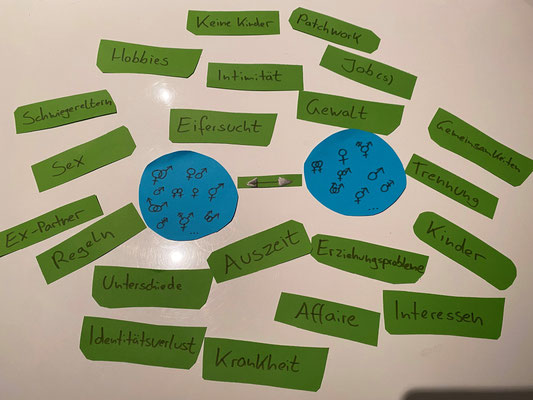 Keine Kinder
Patchwork
Hobbies
Intimität
Job(s)
Schwiegereltern
Eifersucht
Gewalt
Gemeinsamkeiten
Sex
Trennung
Ex-Partner
Regeln
...
...
Auszeit
Erziehungsprobleme
Kinder
Unterschiede
Affaire
Interessen
Identitätsverlust
Krankheit